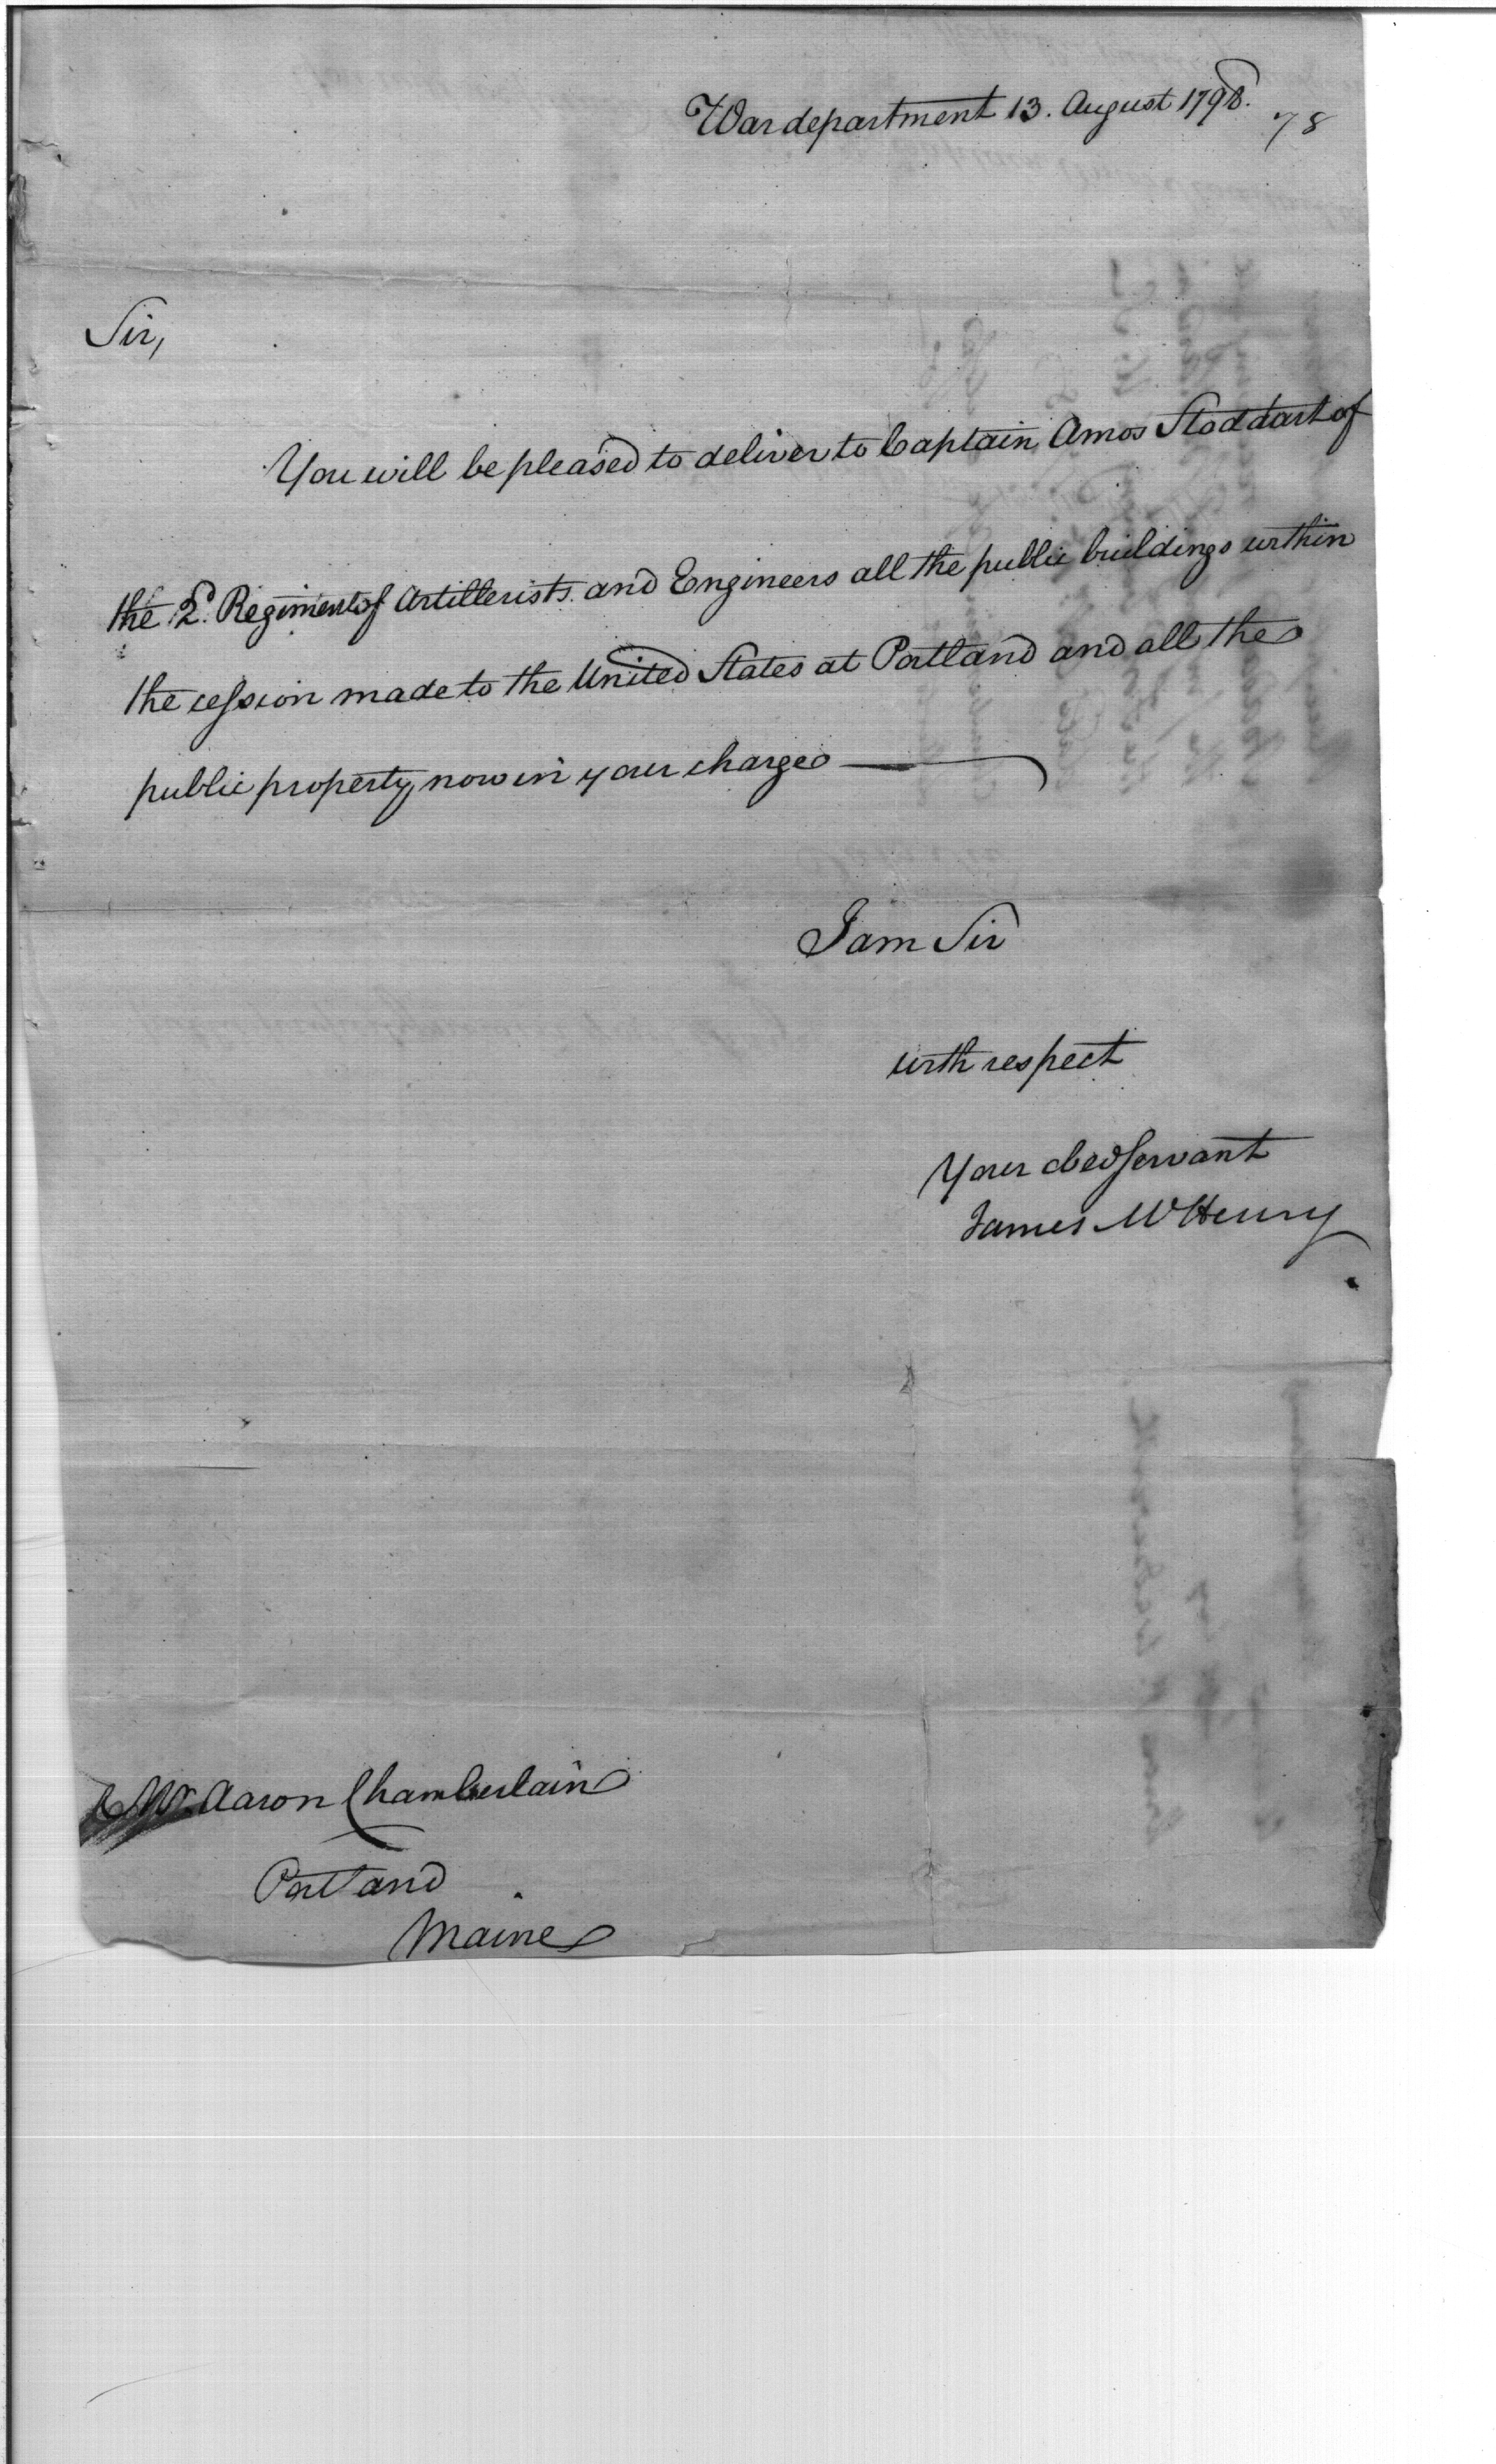 War department 13. August 1798.
78
Sir,
You will be pleased to deliver to Captain Amos Stoddart of
the 2d. Regiment of Artillerists and Engineers all the public buildings within
the cession made to the United States at Portland and all the
public property now in your charge
I am Sir
with respect
Your obed servant
James McHenry
Mr. Aaron Chamberlain
Portland
Maine